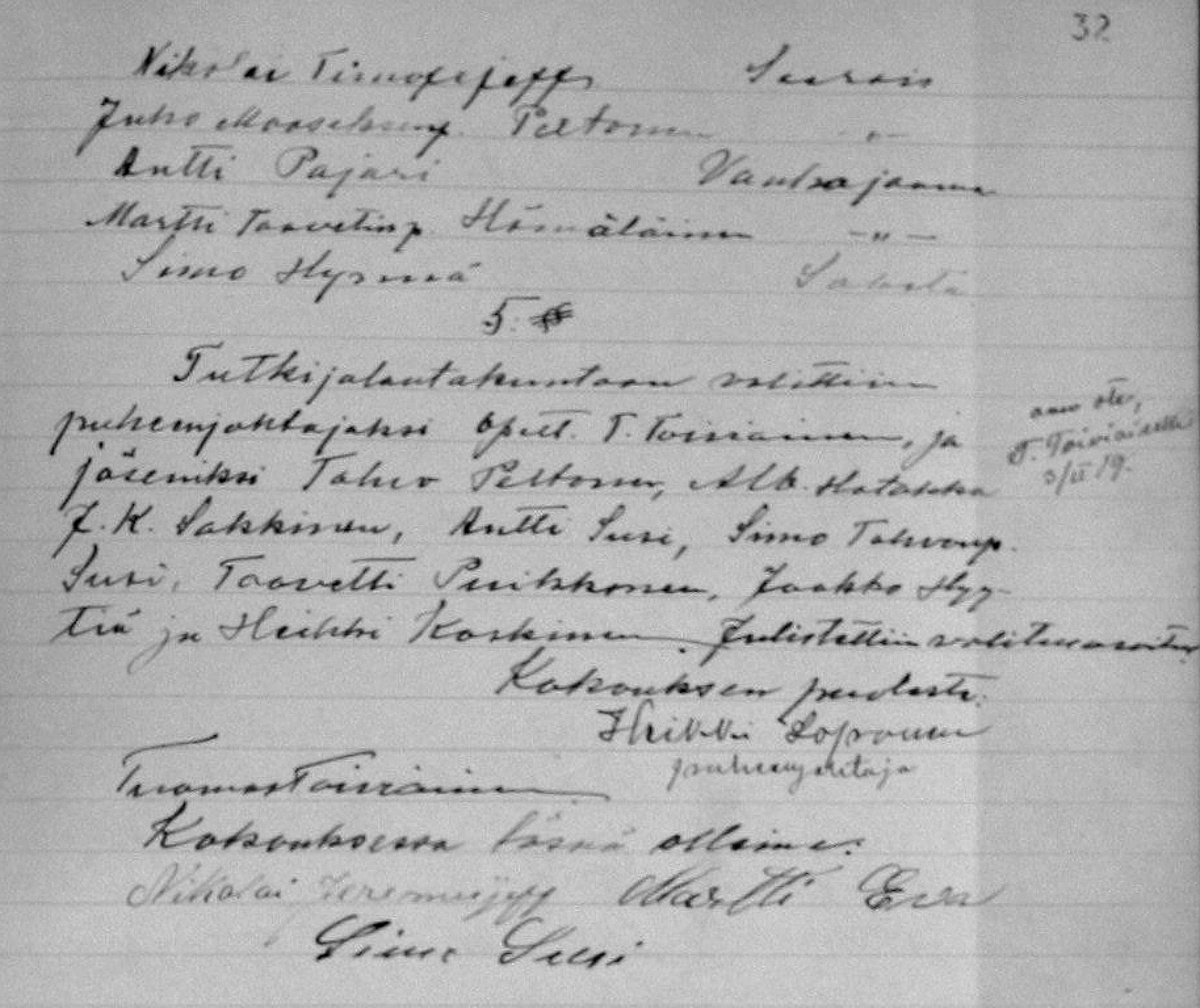 32
Nikolai Timofejeff
Juho Moosek:np. Peltonen „
Antti Pajari Vauhsjaama
Martti Taavetinp. Hämäläinen -„-
Simo Hyrsiä Sakula
5.
Tutkijalautakuntaan valittiin
puheenjohtajaksi opett. T. Toiviainen, ja
jäseniksi Tahvo Peltonen, Alb. Hatakka
J. K. Sakkinen, Antti Susi, Simo Tahvonp.
Susi, Taavetti Puikkonen, Jaakko Hyy-
tiä ja Heikki Koskinen. Julistettiin valitusosoitus.
ote,
T. Toiviaiselle
3/II 19.
Kokouksen puolesta:
Heikki Loponen
puheenjohtaja
Tuomas Toiviainen
Kokouksessa läsnä olleina:
Nikolai Jeremejeff Martti Eva
Simo Susi